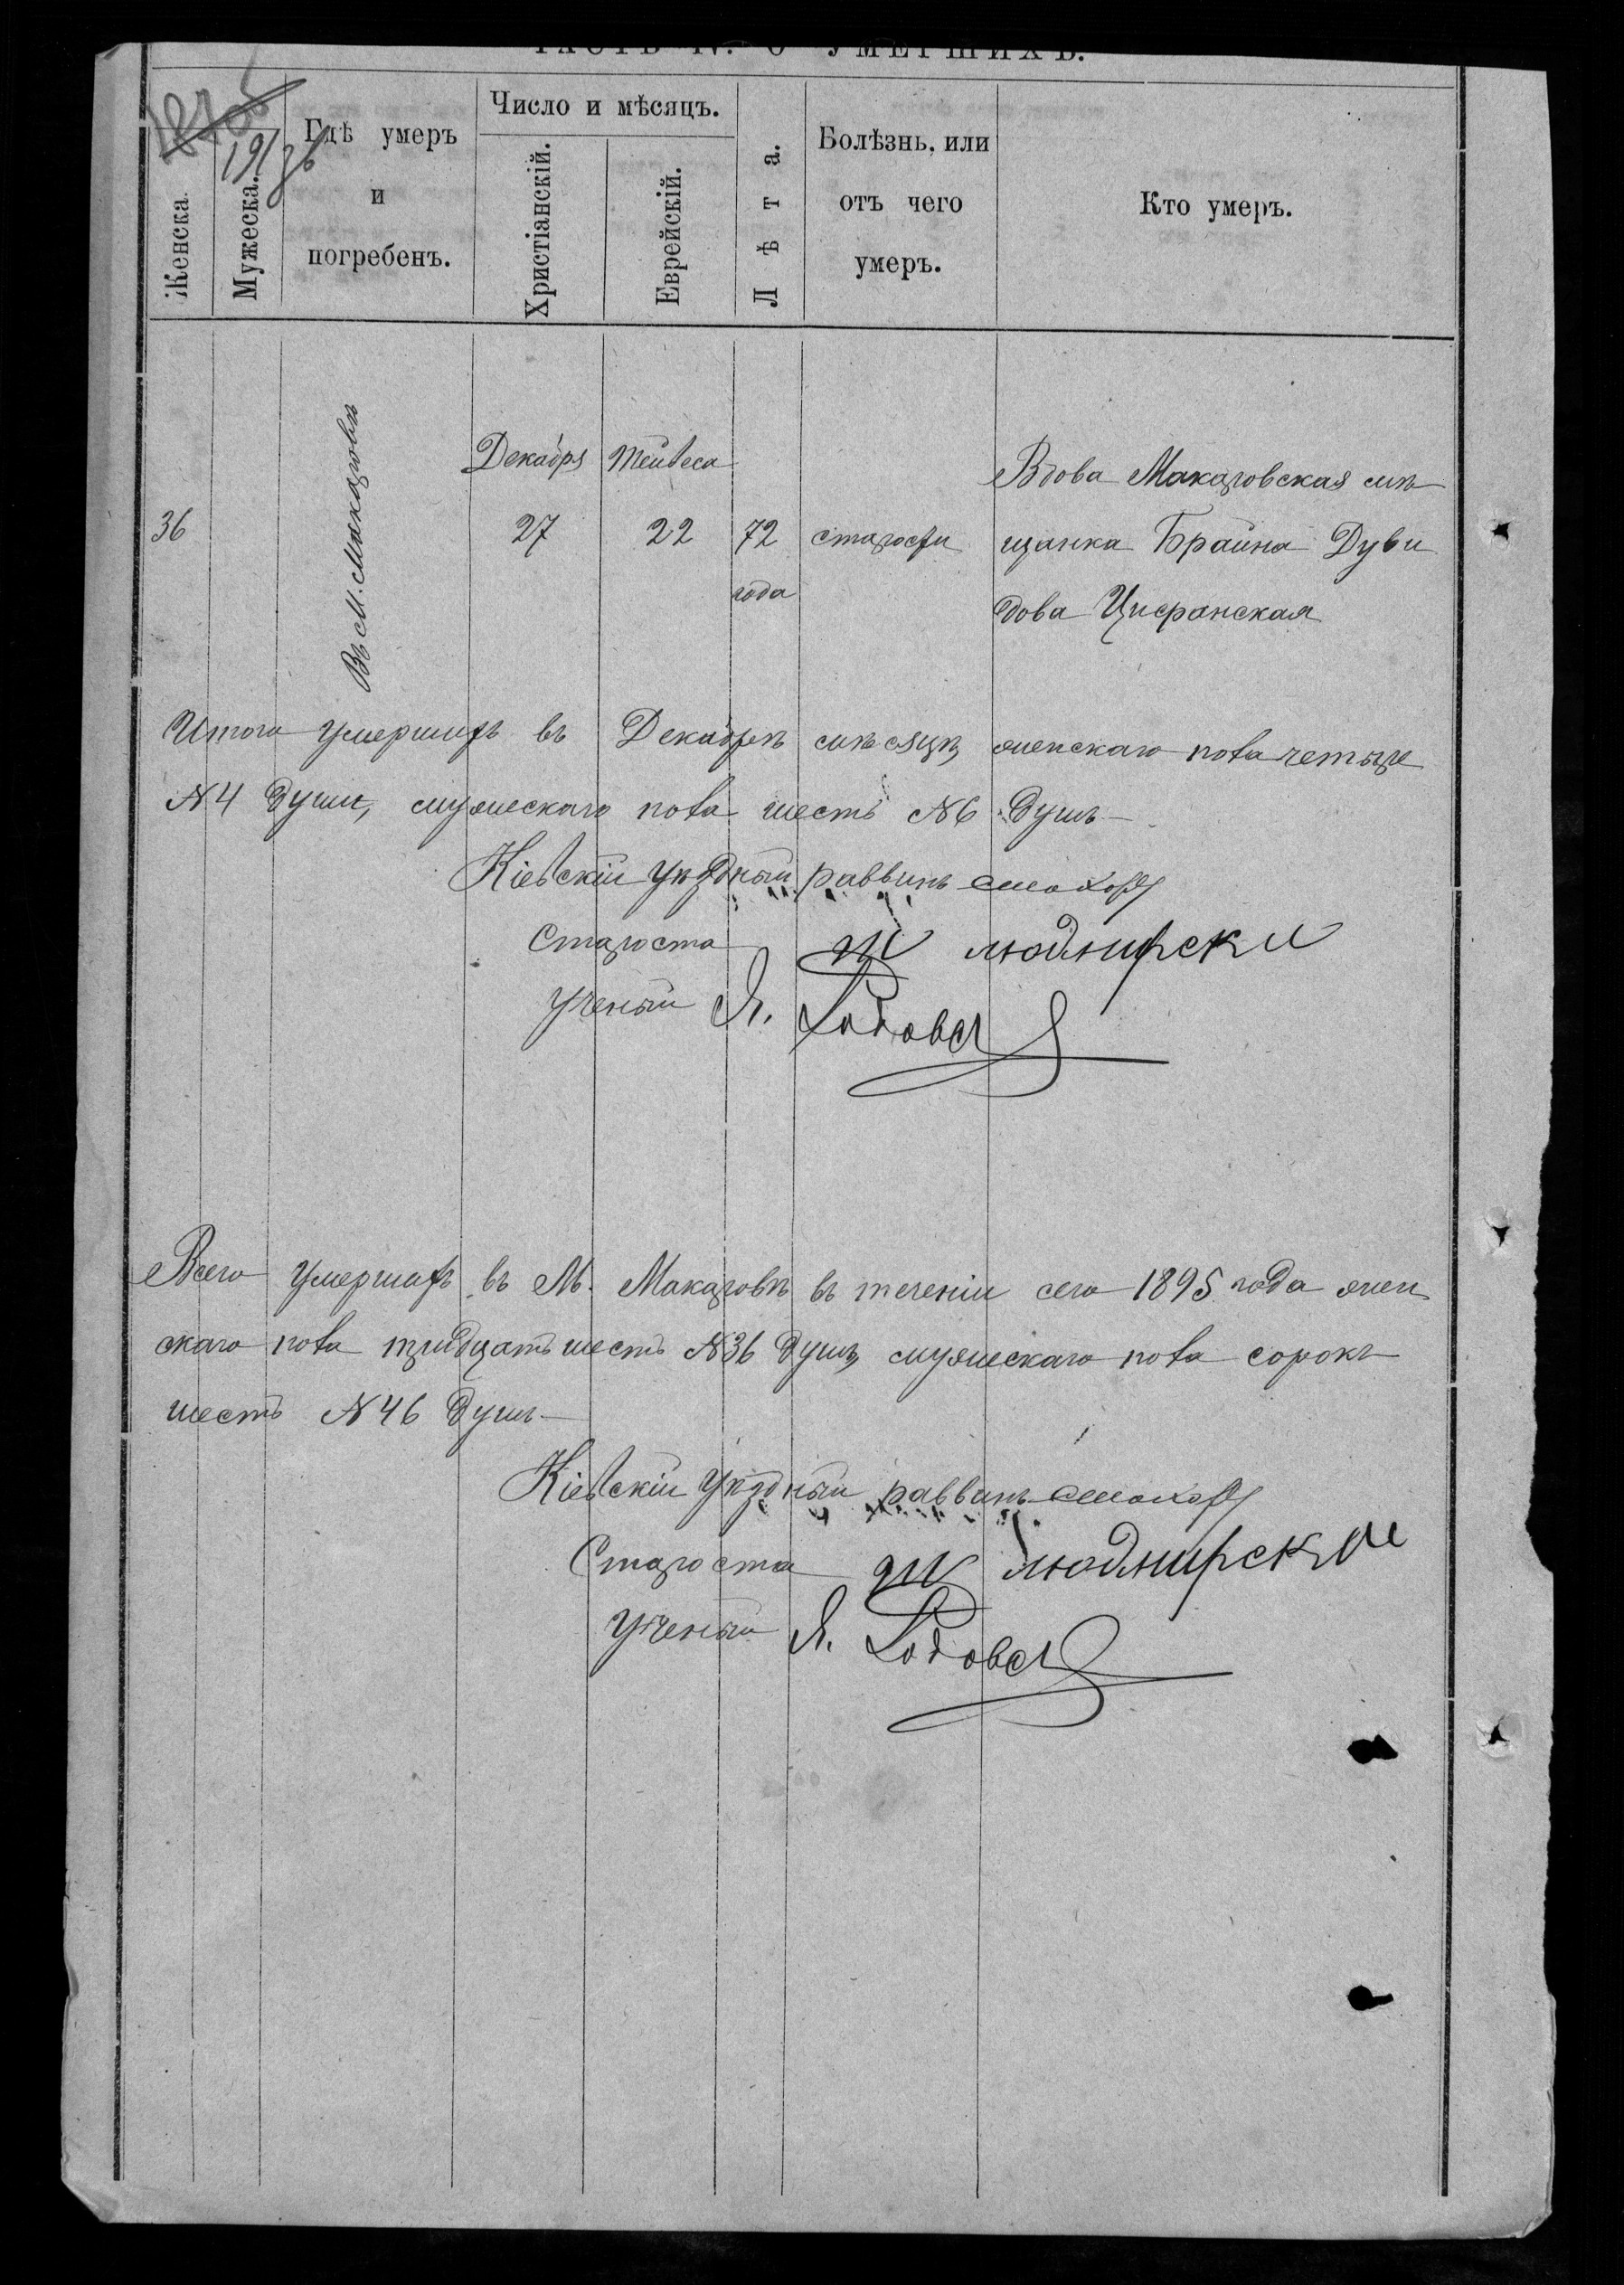 ЧАСТЬ IV. О УМЕРШИХЪ.
Женска.
Мужеска.
Гдѣ умеръ
и
погребенъ.
Число и мѣсяцъ.
Христіанскій.
Еврейскій.
Лѣта.
Болѣзнь, или
отъ чего
умеръ.
Кто умеръ.
36
Въ М. Макаровѣ
Декабря
27
Тейвеса
22
72
года
старости
Вдова Макаровская мѣ
щанка Брайна Дуви
дова Цифранская
Итого умершихъ въ Декабрѣ мѣсяцѣ женскаго пола четыре
№ 4 души, мужескаго пола шесть № 6 душъ
Кіевскій Уѣздный раввинъ
Староста Ш Людмирски
Ученый Я.
Всего умершихъ въ М. Макаровѣ въ теченіи сего 1895 года жен
скаго пола тридцать шесть № 36 душъ, мужескаго пола сорокъ
шесть № 46 душъ
Кіевскій Уѣздный раввинъ
Староста Ш Людмирски
Ученый Я.